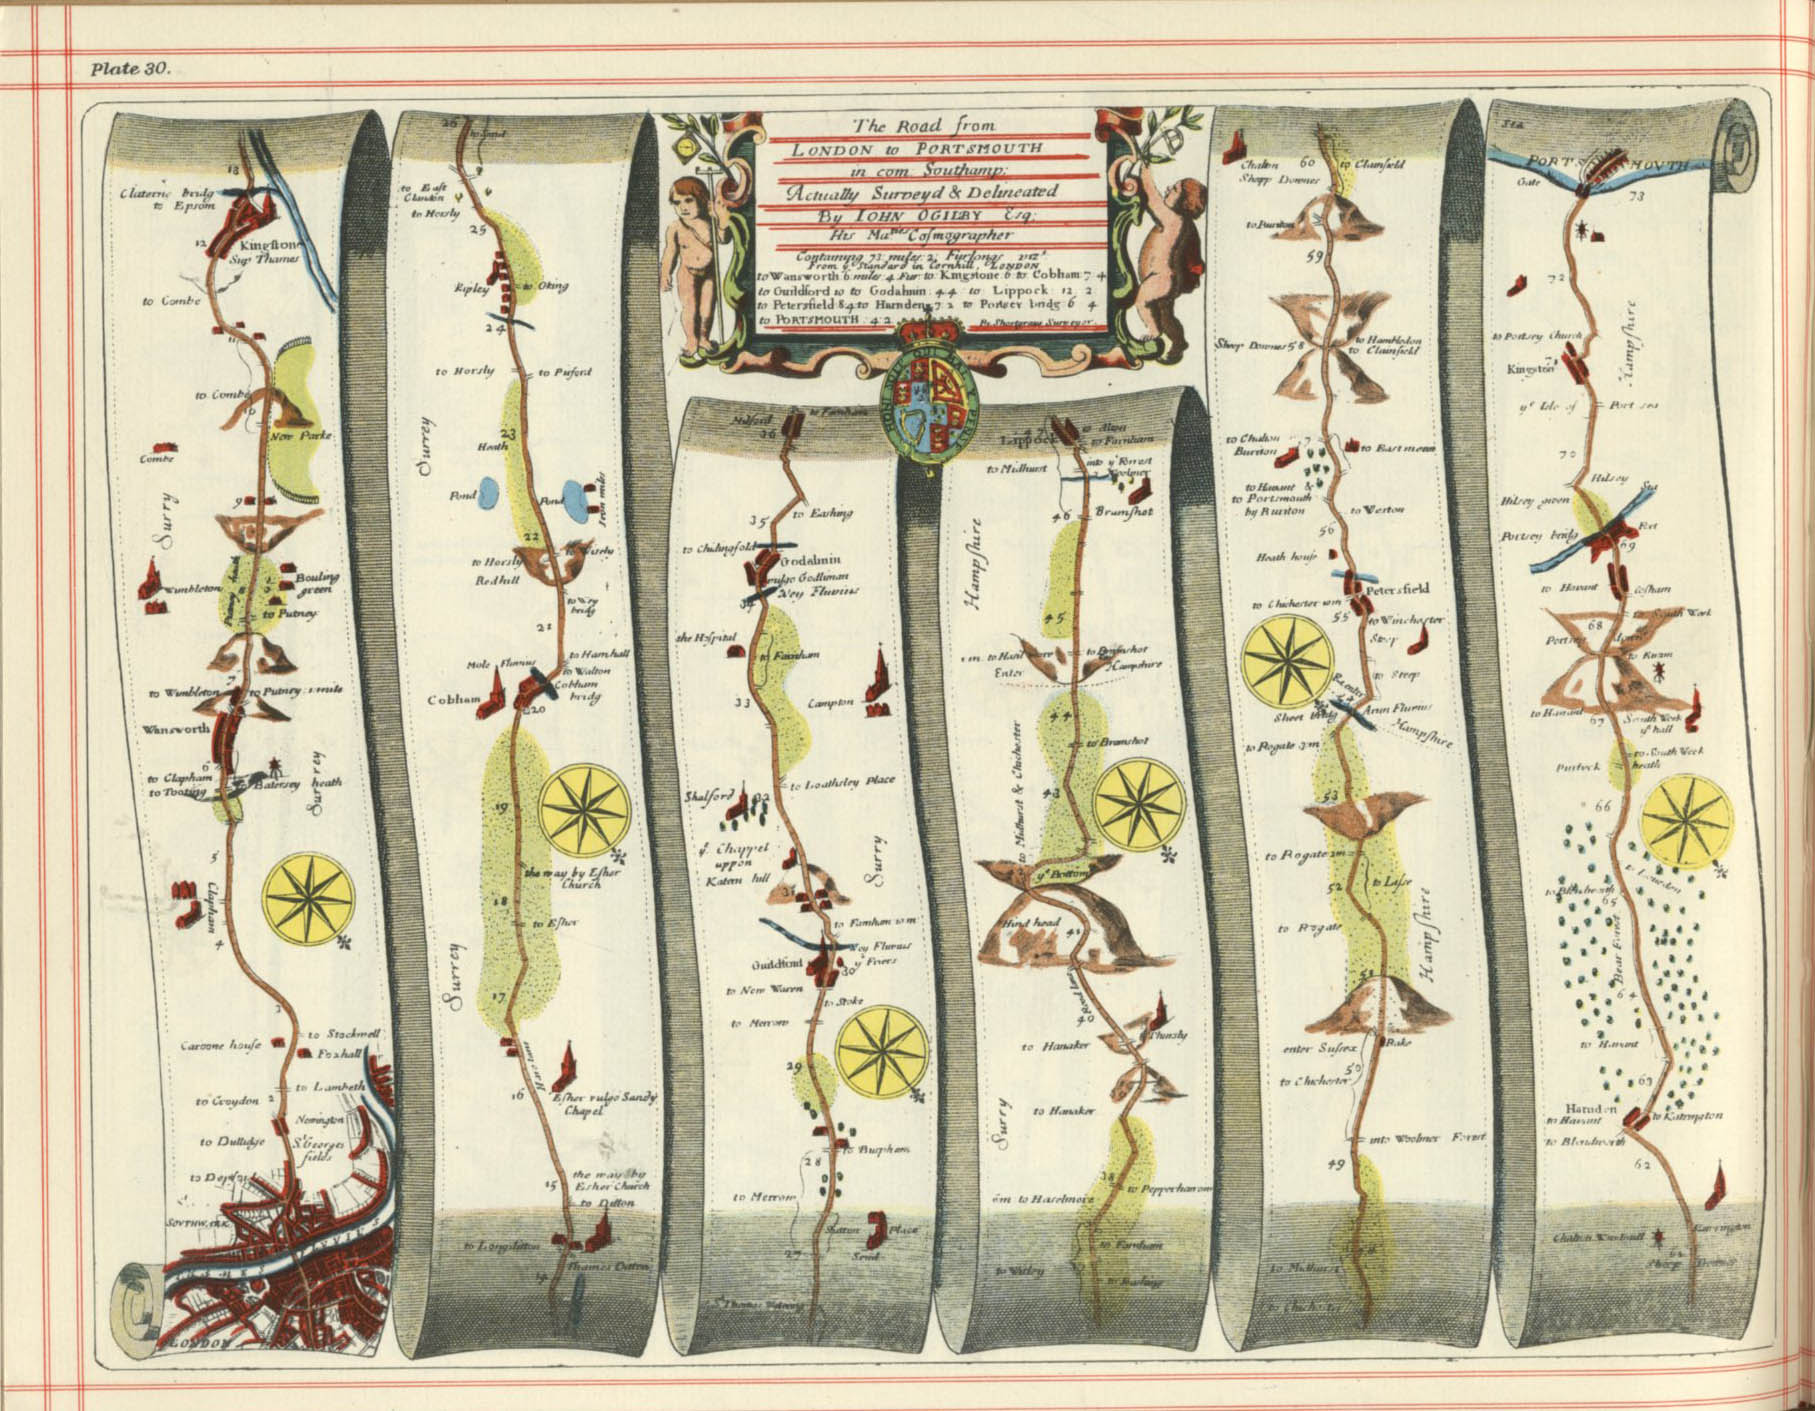 Plate 30.
The Road from
LONDON to PORTSMOUTH
in com Southamp:
Actually Surveyd & Delineated
By IOHN OGILBY Esq;
His Ma.ties Cosmographer
Containing 73 miles 2 Furlongs vizt
From ye Standard in Cornhill, LONDON
to Wansworth 6 miles 4 Fur: to Kingstone 6 to Cobham 7 4
to Guildford 10 to Godalmin 4 4 to Lippock 12 2
to Petersfield 8 4 to Harnden 7 2 to Portsey bridg 6 4
to PORTSMOUTH 4 2
13
Claterne bridg
to Epsom
12
Kingstone
Sup Thames
to Combe
11
to Combe
10
New Parke
Combe
Surry
9
Putney heath
8
Bouling
green
Wimbleton
to Putney
to Wimbleton
7
to Putney 1 mile
Wansworth
6
to Clapham
to Tooting
Batersey
Surrey
heath
5
Clapham
4
3
to Stockwell
Caroone house
Foxhall
to Lambeth
to Croydon
2
Newington
to Dullidge
St Georges
fields
to Depford
SOVTHWARK
THAMES FLVVIUS
LONDON
26
to Send
to East
Clandon
to Horsly
25
Ripley
to Oking
24
to Horsly
to Puford
Surrey
23
Heath
Pond
Pond
Iron mills
22
to Wisely
to Horsly
Redhill
to Wey
bridg
21
to Hamhall
Mole Fluvius
to Walton
Cobham
Cobham
bridg
20
19
the way by Esher
Church
18
to Esher
Surrey
17
Hare lane
16
Esher vulgo Sandy
Chapel
the way by
Esher Church
15
to Ditton
to Longditton
Thames Ditton
14
Milford
to Farnham
36
35
to Eashing
to Chidingfold
Godalmin
vulgo Godliman
34
Wey Fluvius
the Hospital
to Farnham
33
Compton
to Loathsley Place
Shalford
32
ye Chappel
uppon
Katern hill
Surry
31
to Farnham 10 m
Wey Fluvius
Guildford
ye Friers
30
to New Waren
to Stoke
to Merrow
29
to Burpham
28
to Merrow
Sutton Place
Send
27
St Thomas Watering
HONI SOIT QUI MAL Y PENSE
47
to Alton
Lippock
to Farnham
to Midhurst
into ye Forrest
Woolmer
46
Bramshot
Hampshire
45
to Bramshot
Enter
Hampshire
44
to Bramshot
to Midhurst & Chichester
43
ye Bottom
Hind head
41
Road lane
40
Thursly
to Hanaker
to Hanaker
Surry
38
to Pepperharrow
to Haselmere
to Farnham
to Witley
Chalton
60
to Clainfield
Shepp Downes
to Buriton
59
Sheep Downes
58
to Hambledon
to Clainfield
to Chalton
Buriton
57
to Eastmeon
to Havant &
to Portsmouth
by Buriton
to Weston
56
Heath house
Petersfield
to Chichester 10m
55
to Winchester
Steep
to Steep
Re enter
54
Arun Fluvius
Sheet bridg
Hampshire
to Rogate 3m
53
to Rogate 2m
52
to Lisse
to Rogate
Hampshire
51
Rake
enter Sussex
50
to Chichester
into Woolmer Forest
49
48
to Midhurst
to Chichester
Sea
PORTSMOUTH
Gate
73
72
to Portsey Church
71
Kingston
Hampshire
ye Isle of Portsea
70
Hilsey
Hilsey green
Sea
Fort
Portsey bridg
69
to Havant
Cosham
68
to South Week
Portsey down
to Havant
67
South Week
hall
to South Week
heath
Purbeck
66
to Blendworth
65
Bear Forest
64
to Havant
63
Harnden
to Havant
to Katrington
to Blendworth
62
Katrington
Chalton Windmill
61
Sheep Downes